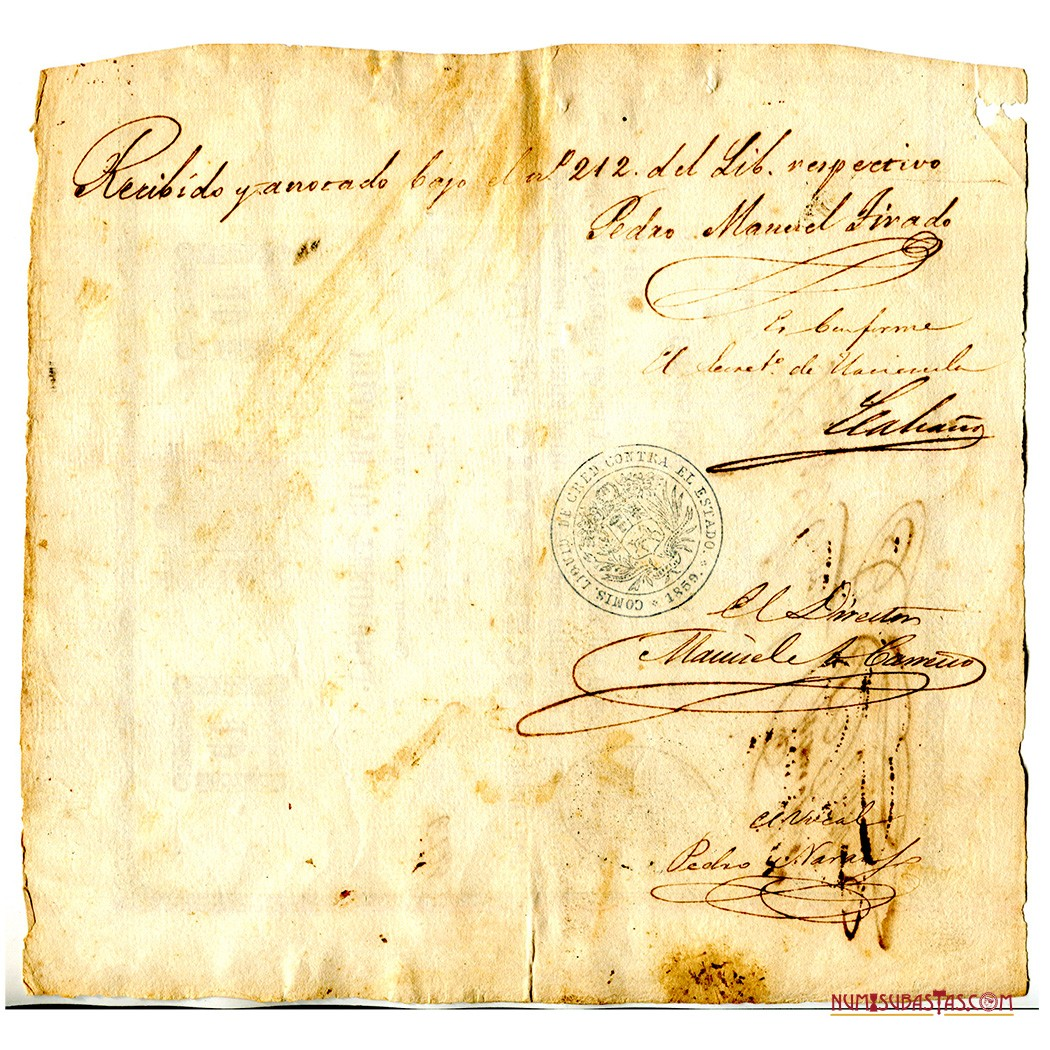 Recibido y anotado bajo el nº 212. del Lib. respectivo
Pedro Manuel Tirado
Es Conforme
El Secretº de Hacienda
COMIS. LIQUID. DE CRED. CONTRA EL ESTADO.
* 1859. *
El Director
Manuel A. Carreño
El Vocal
Pedro Naranjo
NUMISUBASTAS.COM